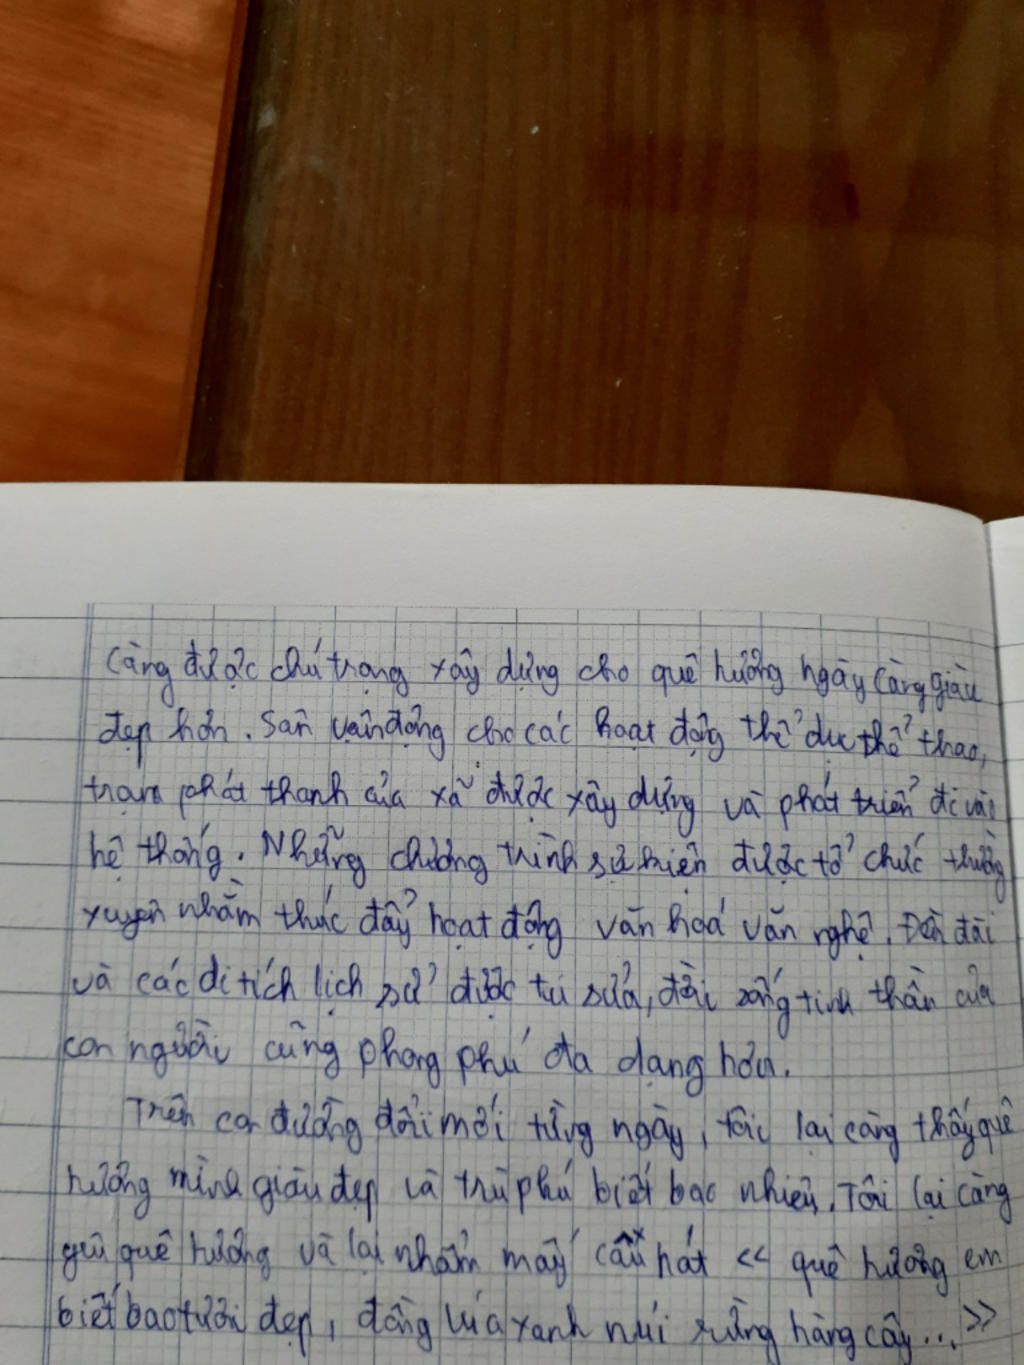 càng được chú trọng xây dựng cho quê hương ngày càng giàu
đẹp hơn. Sân vận động cho các hoạt động thể dục thể thao,
trạm phát thanh của xã được xây dựng và phát triển đi vào
hệ thống. Những chương trình sự kiện được tổ chức thường
xuyên nhằm thúc đẩy hoạt động văn hoá văn nghệ. Đền đài
và các di tích lịch sử được tu sửa, đời sống tinh thần của
con người cũng phong phú đa dạng hơn.
Trên con đường đổi mới từng ngày, tôi lại càng thấy quê
hương mình giàu đẹp và trù phú biết bao nhiêu. Tôi lại càng
yêu quê hương và lại nhẩm mấy câu hát << quê hương em
biết bao tươi đẹp, đồng lúa xanh núi rừng hàng cây... >>